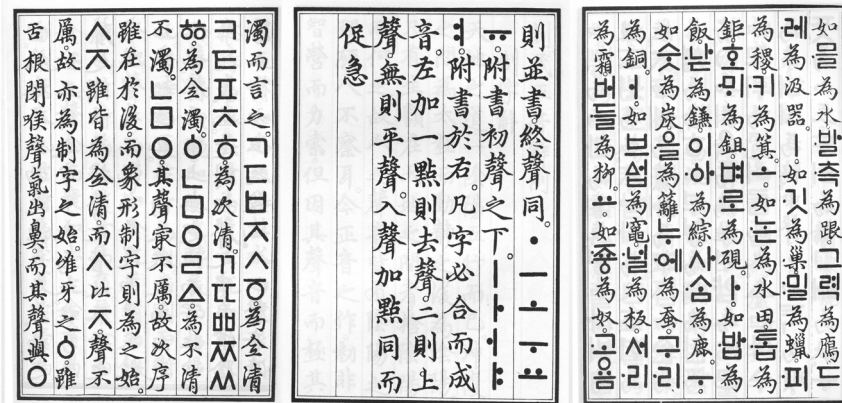 如·믈為水。·발·측為跟。그력為鴈。드
·레為汲器。ㅣ。如·깃為巢。:밀為蠟。·피
為稷。·키為箕。ㅗ。如·논為水田。·톱為
鉅。호·ᄆᆡ為鉏。벼·로為硯。ㅏ。如·밥為
飯。·낟為鎌。이·아為綜。사·ᄉᆞᆷ為鹿。ㅜ。
如숫為炭。·울為籬。누·에為蚕。구·리
為銅。ㅓ。如브ᅀᅥᆸ為竈。:널為板。서·리
為霜。버·들為柳。ㅛ。如:죵為奴。·고욤
則並書。終聲同。ㆍㅡㅗㅜㅛ
ㅠ。附書初聲之下。ㅣㅏㅓㅑ
ㅕ。附書於右。凡字必合而成
音。左加一點則去聲。二則上
聲。無則平聲。入聲加點同而
促急
濁而言之。ㄱㄷㅂㅈㅅㆆ。為全清
ㅋㅌㅍㅊㅎ。為次清。ㄲㄸㅃㅉㅆ
ㆅ。為全濁。ㆁㄴㅁㅇㄹㅿ。為不清
不濁。ㄴㅁㅇ。其聲㝡不厲。故次序
雖在於後。而象形制字則為之始。
ㅅㅈ雖皆為全清。而ㅅ比ㅈ。聲不
厲。故亦為制字之始。唯牙之ㆁ。雖
舌根閉喉聲氣出鼻。而其聲與ㅇ